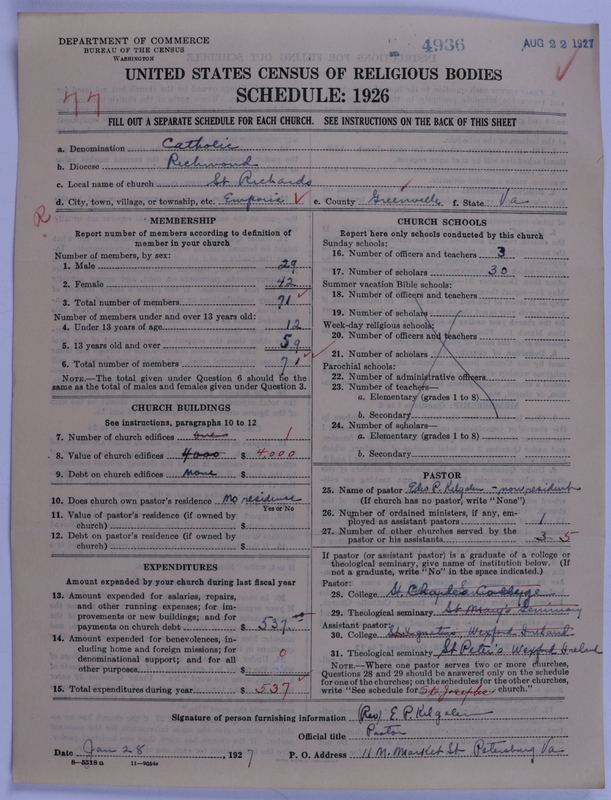 DEPARTMENT OF COMMERCE
BUREAU OF THE CENSUS
WASHINGTON
4936
AUG 22 1927
UNITED STATES CENSUS OF RELIGIOUS BODIES
SCHEDULE: 1926
77
FILL OUT A SEPARATE SCHEDULE FOR EACH CHURCH. SEE INSTRUCTIONS ON THE BACK OF THIS SHEET
a. Denomination Catholic
b. Diocese Richmond
c. Local name of church St Richards
d. City, town, village, or township, etc. Emporia e. County Greenville f. State Va
R
MEMBERSHIP
Report number of members according to definition of
member in your church
Number of members, by sex:
1. Male 29
2. Female 42
3. Total number of members 71
Number of members under and over 13 years old:
4. Under 13 years of age 12
5. 13 years old and over 59
6. Total number of members 71
NOTE.—The total given under Question 6 should be the
same as the total of males and females given under Question 3.
CHURCH BUILDINGS
See instructions, paragraphs 10 to 12
7. Number of church edifices one 1
8. Value of church edifices 4000 $ 4,000
9. Debt on church edifices None $
10. Does church own pastor's residence No residence
Yes or No
11. Value of pastor's residence (if owned by
church) $
12. Debt on pastor's residence (if owned by
church) $
EXPENDITURES
Amount expended by your church during last fiscal year
13. Amount expended for salaries, repairs,
and other running expenses; for im-
provements or new buildings; and for
payments on church debt $ 537
14. Amount expended for benevolences, in-
cluding home and foreign missions; for
denominational support; and for all
other purposes $ 0
15. Total expenditures during year $ 537
CHURCH SCHOOLS
Report here only schools conducted by this church
Sunday schools:
16. Number of officers and teachers 3
17. Number of scholars 30
Summer vacation Bible schools:
18. Number of officers and teachers
19. Number of scholars
Week-day religious schools:
20. Number of officers and teachers
21. Number of scholars
Parochial schools:
22. Number of administrative officers
23. Number of teachers—
a. Elementary (grades 1 to 8)
b. Secondary
24. Number of scholars—
a. Elementary (grades 1 to 8)
b. Secondary
PASTOR
25. Name of pastor P. Kilgalen - non resident
(If church has no pastor, write "None")
26. Number of ordained ministers, if any, em-
ployed as assistant pastors 1
27. Number of other churches served by the
pastor or his assistants 3 5
If pastor (or assistant pastor) is a graduate of a college or
theological seminary, give name of institution below. (If
not a graduate, write "No" in the space indicated.)
Pastor:
28. College St. Charles College
29. Theological seminary St Mary's Seminary
Assistant pastor:
30. College St Ignatius, Wexford Ireland
31. Theological seminary St Peter's Wexford Ireland
NOTE.—Where one pastor serves two or more churches,
Questions 28 and 29 should be answered only on the schedule
for one of the churches; on the schedules for the other churches,
write "See schedule for St Josephs church."
Signature of person furnishing information (Rev) E. P. Kilgalen
Official title Pastor
Date Jan 28, 1927 P. O. Address 11 N. Market St Petersburg Va
8—5518a 11—9084a